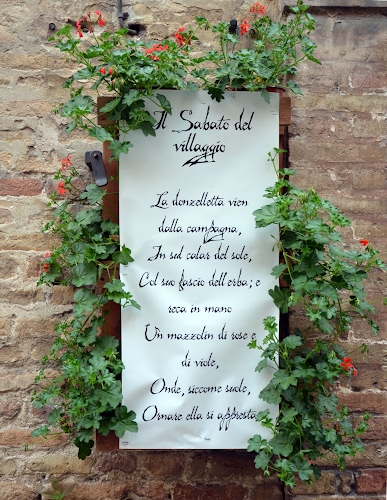 Il Sabato del
villaggio
La donzelletta vien
dalla campagna,
In sul calar del sole,
Col suo fascio dell'erba; e
reca in mano
Un mazzolin di rose e
di viole,
Onde, siccome suole,
Ornare ella si appresta